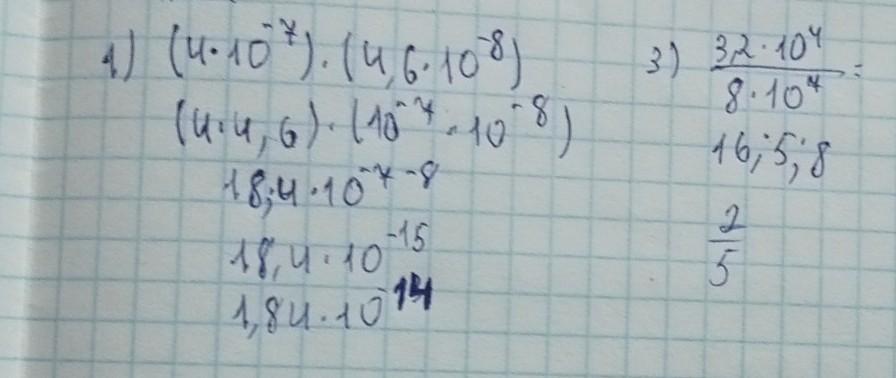 1) (4·10⁻⁷)·(4,6·10⁻⁸)
(4·4,6)·(10⁻⁷·10⁻⁸)
18,4·10⁻⁷⁻⁸
18,4·10⁻¹⁵
1,84·10⁻¹⁴
3) 3,2·10⁴
8·10⁷ =
16;5;8
2
5